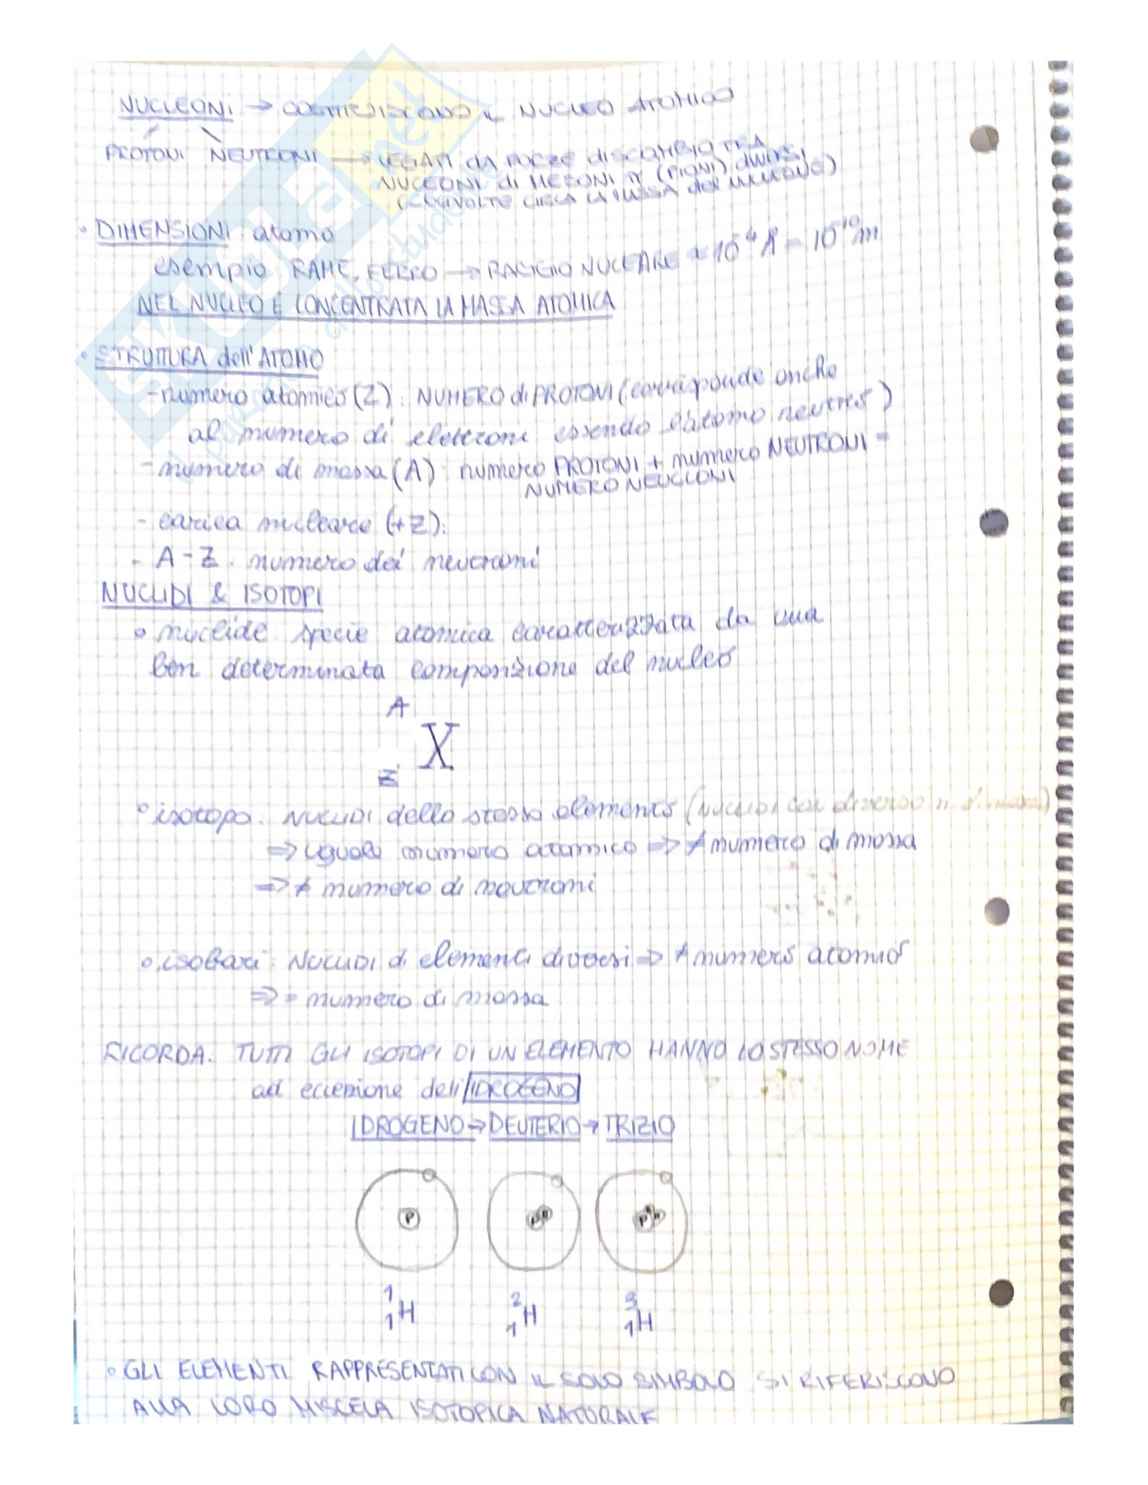 NUCLEONI → COSTITUISCONO IL NUCLEO ATOMICO
PROTONI NEUTRONI → LEGATI DA FORZE DI SCAMBIO TRA
NUCLEONI di MESONI π (PIONI) DIVERSI
VOLTE CIRCA LA MASSA DEL
• DIMENSIONI atomo
esempio RAME, FERRO → RAGGIO NUCLEARE ≈ 10⁻⁴ Å = 10⁻¹⁰ m
NEL NUCLEO È CONCENTRATA LA MASSA ATOMICA
• STRUTTURA dell'ATOMO
- numero atomico (Z): NUMERO di PROTONI (corrisponde anche
al numero di elettroni essendo l'atomo neutro)
- numero di massa (A): numero PROTONI + numero NEUTRONI =
NUMERO NEUCLONI
- carica nucleare (+Z):
- A-Z: numero dei neutroni
NUCLIDI & ISOTOPI
• nuclide specie atomica caratterizzata da una
ben determinata composizione del nucleo
A
X
Z
• isotopo: NUCLIDI dello stesso elemento (NUCLIDI con diverso n. di massa)
⇒ uguale numero atomico ⇒ ≠ numero di massa
⇒ ≠ numero di neutroni
• isobari: NUCLIDI di elementi diversi ⇒ ≠ numero atomico
⇒ = numero di massa
RICORDA: TUTTI GLI ISOTOPI DI UN ELEMENTO HANNO LO STESSO NOME
ad eccezione dell'IDROGENO
IDROGENO → DEUTERIO → TRIZIO
P
¹₁H ²₁H ³₁H
• GLI ELEMENTI RAPPRESENTATI CON IL SOLO SIMBOLO SI RIFERISCONO
ALLA LORO MISCELA ISOTOPICA NATURALE